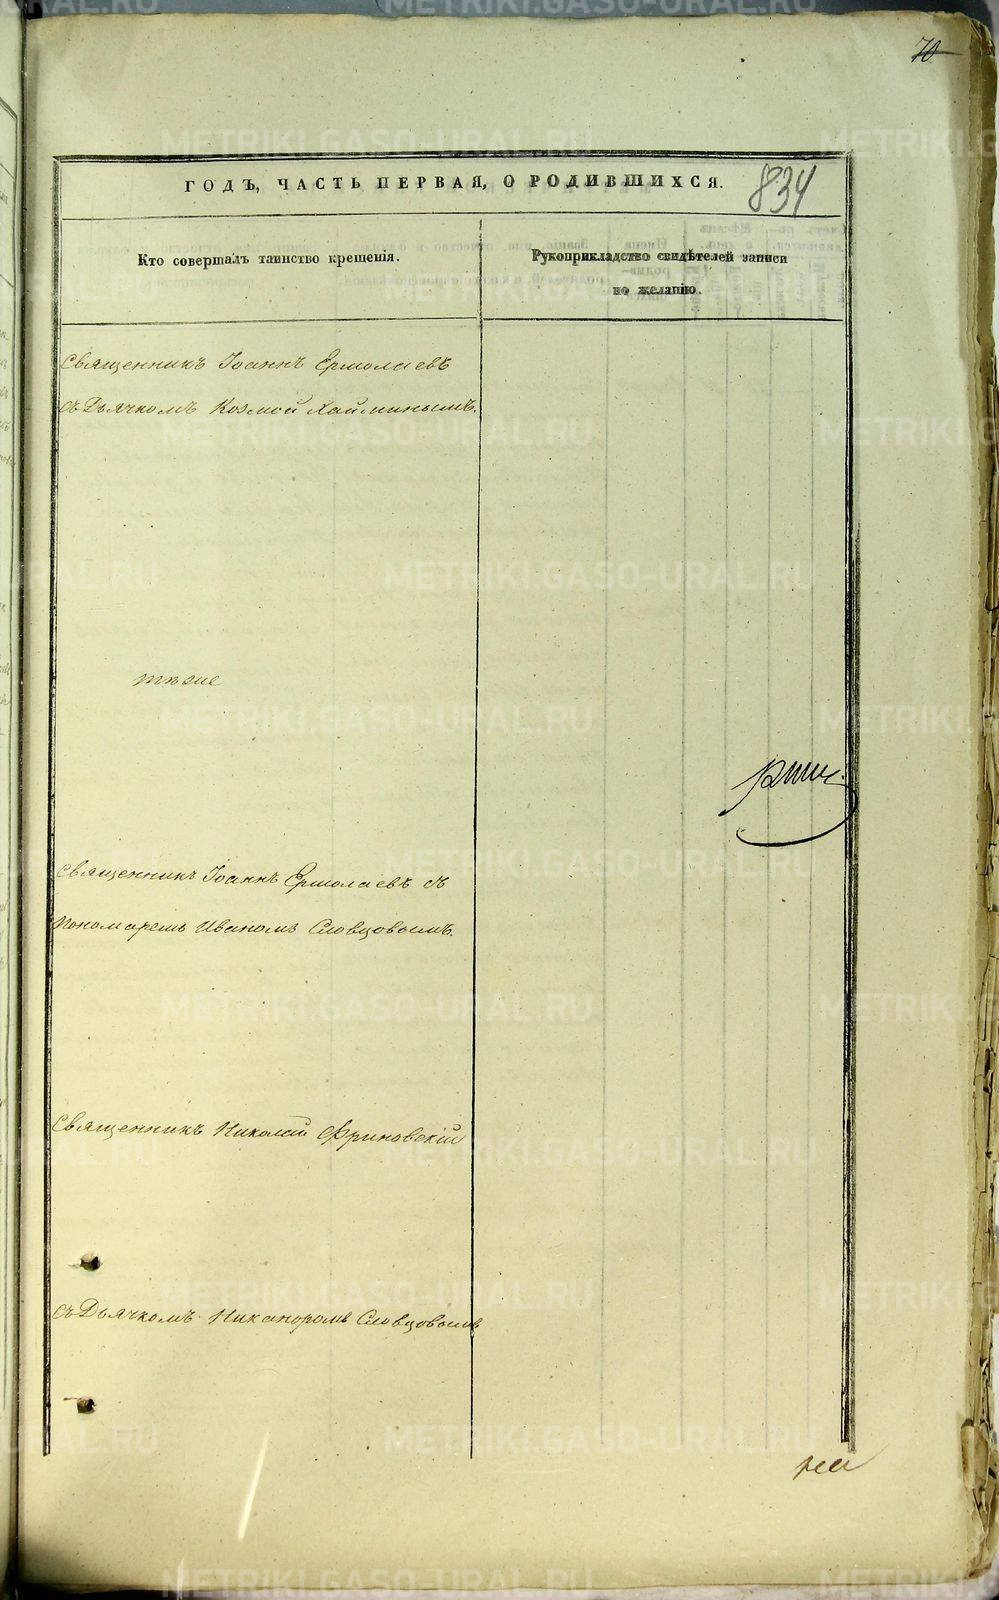 70
ГОДЪ, ЧАСТЬ ПЕРВАЯ, О РОДИВШИХСЯ.
834
Кто совершалъ таинство крещенія.
Рукоприкладство свидѣтелей записи
по желанію.
Священникъ Іоаннъ Ермолаевъ
съ Дьячкомъ Козмой Хайминымъ.
тѣже
Священникъ Іоаннъ Ермолаевъ съ
Пономаремъ Иваномъ Словцовымъ.
Священникъ Николай Фриновскій
съ Дьячкомъ Никаноромъ Словцовымъ
METRIKI.GASO-URAL.RU